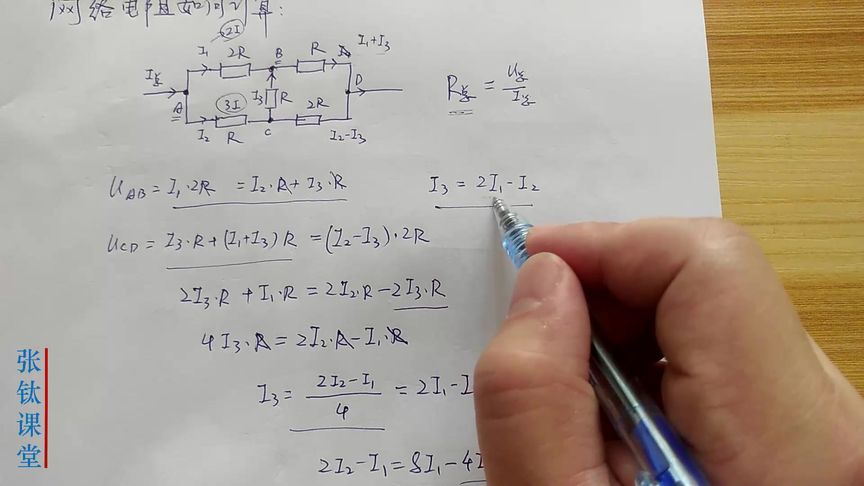 网络电阻如何计算:
I₁ 2I 2R B R I₁+I₃
I总 A I₃ R D
3I 2R
I₂ R C I₂-I₃
R总 = U总/I总
U_AB = I₁·2R = I₂·R+I₃·R
I₃ = 2I₁-I₂
U_CD = I₃·R+(I₁+I₃)R = (I₂-I₃)·2R
2I₃·R+I₁·R = 2I₂·R-2I₃·R
4I₃·R = 2I₂·R-I₁·R
I₃ = (2I₂-I₁)/4 = 2I₁-I
2I₂-I₁=8I₁-4I
张钛课堂